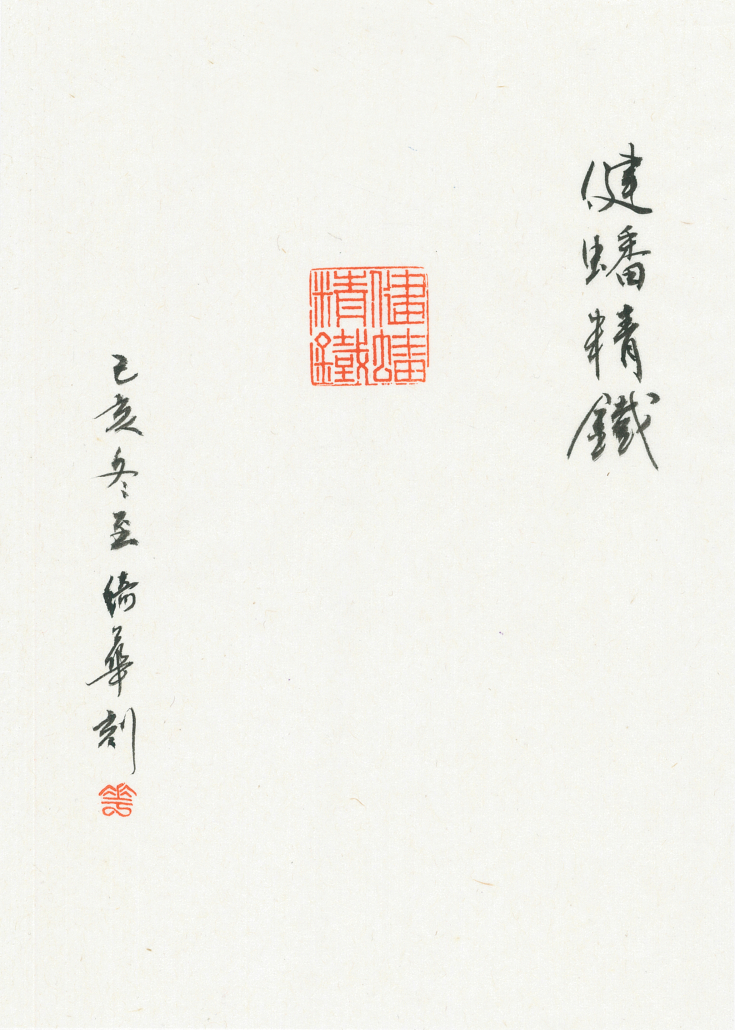 健蟠精鐵
健蟠
精鐵
己亥冬至綺華刻